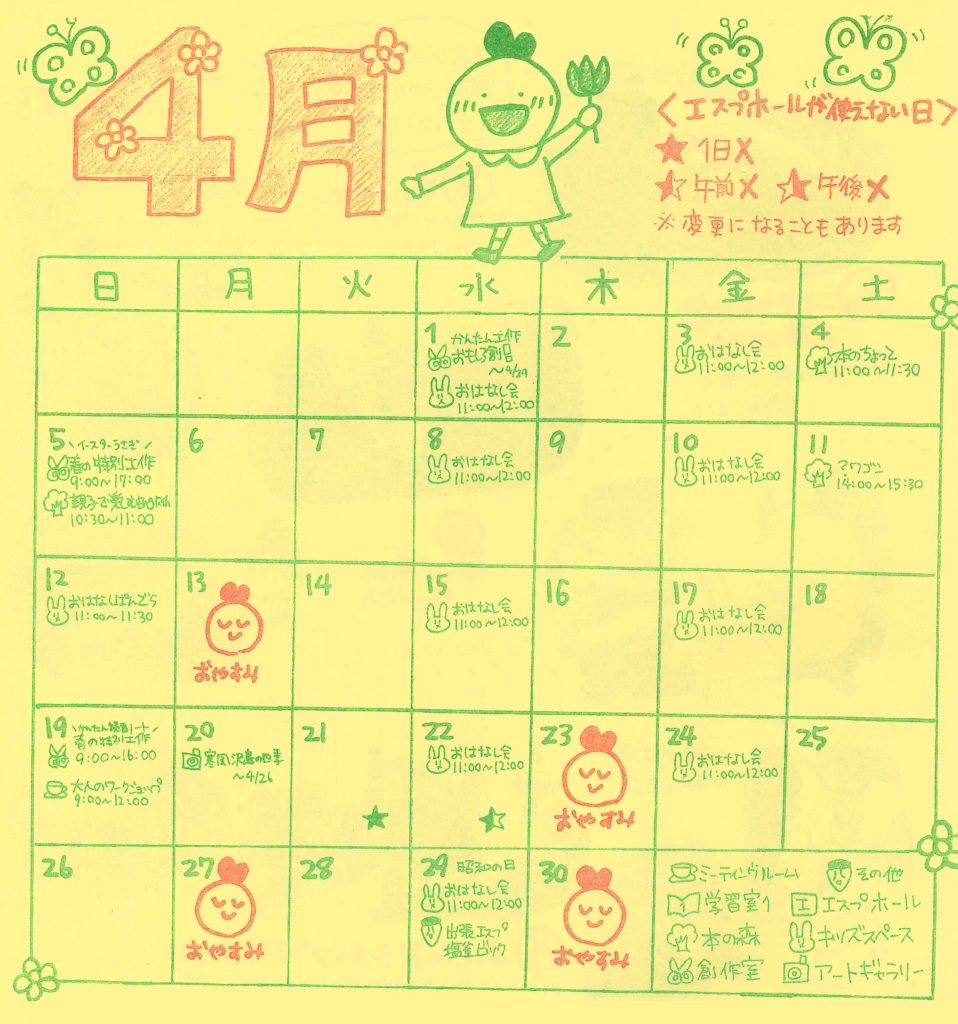 4月
<エスプホールが使えない日>
★ 1日X
☆午前X ☆午後X
※変更になることもあります
日 月 火 水 木 金 土
1 かんたん工作
おもしろ創号
~4/29
おはなし会
11:00~12:00
2
3 おはなし会
11:00~12:00
4 本のちょっと
11:00~11:30
5 \イースターうさぎ/
春の特別工作
9:00~17:00
親子で楽しむ
10:30~11:00
6
7
8 おはなし会
11:00~12:00
9
10 おはなし会
11:00~12:00
11 アワゴン
14:00~15:30
12 おはなしぱんどら
11:00~11:30
13
おやすみ
14
15 おはなし会
11:00~12:00
16
17 おはなし会
11:00~12:00
18
19 \かんたん ノート
春の特別工作
9:00~16:00
大人のワークショップ
9:00~12:00
20
寒風沢島の四季
~4/26
21
★
22
おはなし会
11:00~12:00
23
おやすみ
24
おはなし会
11:00~12:00
25
26
27
おやすみ
28
29 昭和の日
おはなし会
11:00~12:00
出張エスプ
塩釜ピック
30
おやすみ
ミーティングルーム その他
学習室1 エエスプホール
本の森 キッズスペース
創作室 アートギャラリー